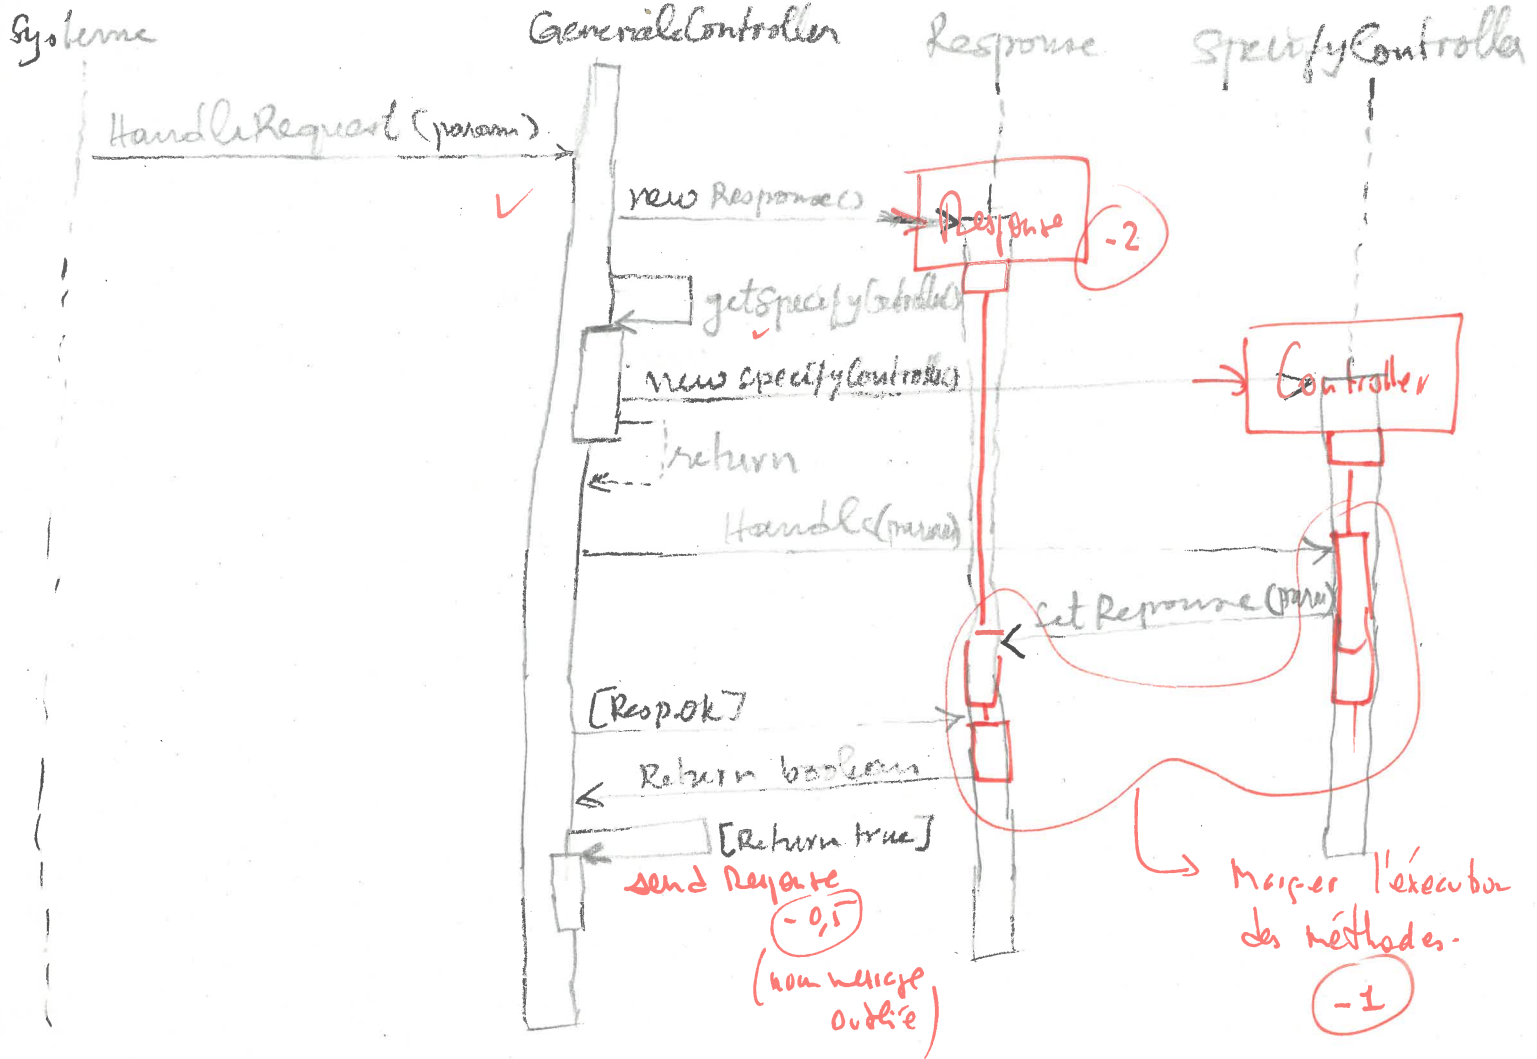 Système GeneraleController Response SpecifyController
HandleRequest (param)
new Response()
Response
-2
getSpecifyController()
new SpecifyController()
Controller
return
Handle (param)
Set Reponse (param)
[Resp.ok]
Return boolean
[Return true]
send Response
-0,5
(nom message
oublié)
Marquer l'éxécution
des méthodes.
-1